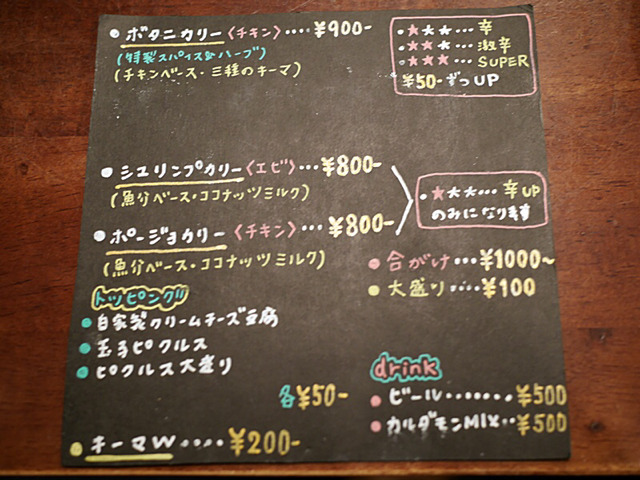 ボタニカリー〈チキン〉‥‥¥900-
(特製スパイス&ハーブ)
(チキンベース・三種のキーマ)
★★★…辛
★★★…激辛
★★★…SUPER
¥50-ずつUP
シュリンプカリー〈エビ〉…¥800-
(魚介ベース・ココナッツミルク)
ポージョカリー〈チキン〉…¥800-
(魚介ベース・ココナッツミルク)
★★★…辛UP
のみになります
合がけ…¥1000~
大盛り‥‥¥100
トッピング!!
自家製クリームチーズ豆腐
玉子ピクルス
ピクルス大盛り
各¥50-
キーマW‥‥¥200-
drink
ビール‥‥‥‥¥500
カルダモンMIX‥¥500